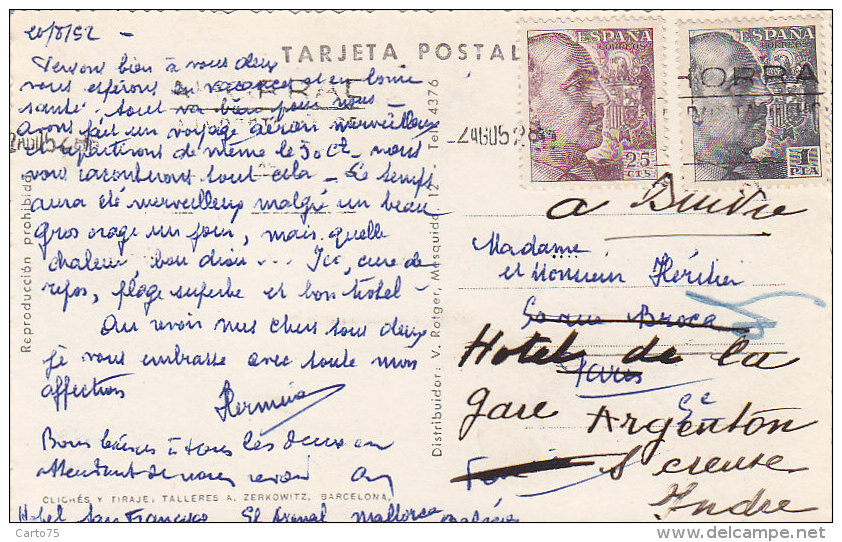 20/8/52 -
TARJETA POSTAL
Pensons bien à vous deux
vous espérons en vacances et en bonne
santé. tout va bien pour nous -
avons fait un voyage aérien merveilleux
et repartirons de même le 30 Ct - vous
vous raconterons tout cela - Le temps
aura été merveilleux malgré un beau
gros orage un jour, mais quelle
chaleur, bon dieu ... Ici, cure de
repos, plage superbe et bon hotel -
Au revoir mes chers tous deux
je vous embrasse avec toute mon
affection
Bons baisers à tous les deux en
attendant de nous revoir
CLICHÉS Y TIRAJE: TALLERES A. ZERKOWITZ, BARCELONA.
Hotel San Francisco El Arenal Mallorca
Reproducción prohibida
Distribuidor: V. Rotger, Mesquida, 12 - Tel. 4376
ESPAÑA
CORREOS
25
CTS
ESPAÑA
CORREOS
1
PTA
a
Madame
et Monsieur Héritier
rue Broca
Hotel de la
Paris
gare Argenton
s Creuse
Indre
Copyright Carto75
www.delcampe.net